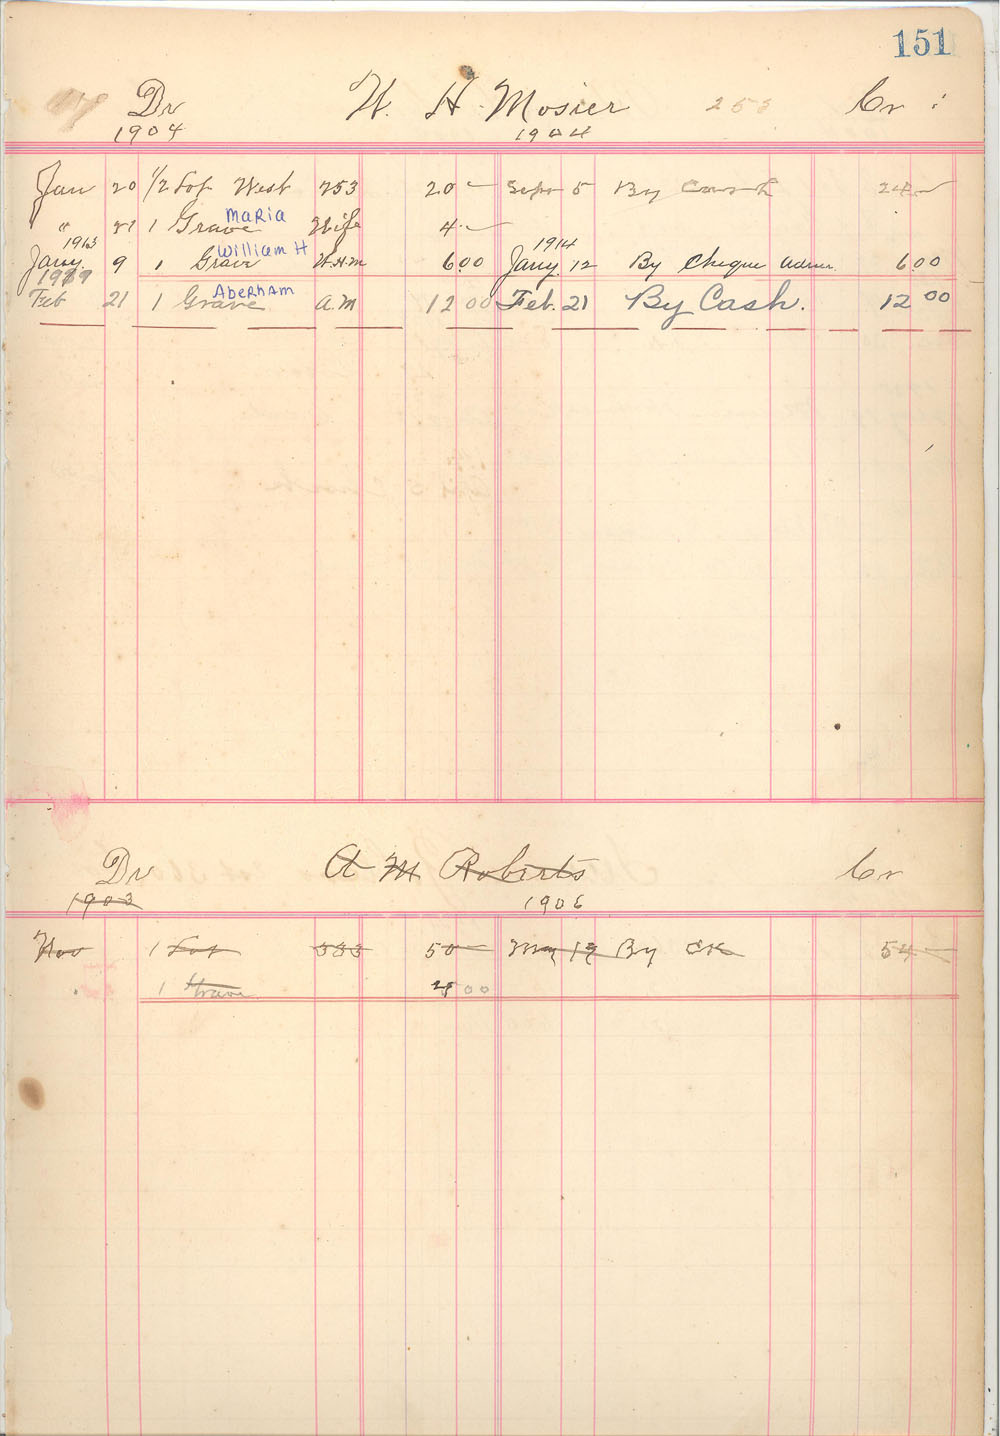 151
Dr W. H. Mosier 253 Cr
1904 1904
Jan 20 1/2 Lot West 253 20 — Sept 5 By Cash 24 —
" 21 1 Grave Maria Wife 4 —
1913 1914
Jany 9 1 Grave William H W.H.M 6 00 Jany 12 By Cheque Admr. 6 00
1919
Feb 21 1 Grave Aberham A.M 12 00 Feb. 21 By Cash. 12 00
Dr A M Roberts Cr
1903 1906
Nov 1 Lot 333 50 — May 19 By CK 54 —
1 Grave 4 00